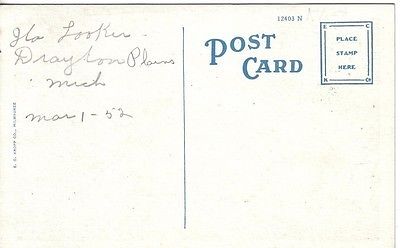 Ila Looker -
Drayton Plains
Mich
Mar 1 - 52
E. C. KROPP CO., MILWAUKEE
12403 N
POST
CARD
E C
PLACE
STAMP
HERE
K Co